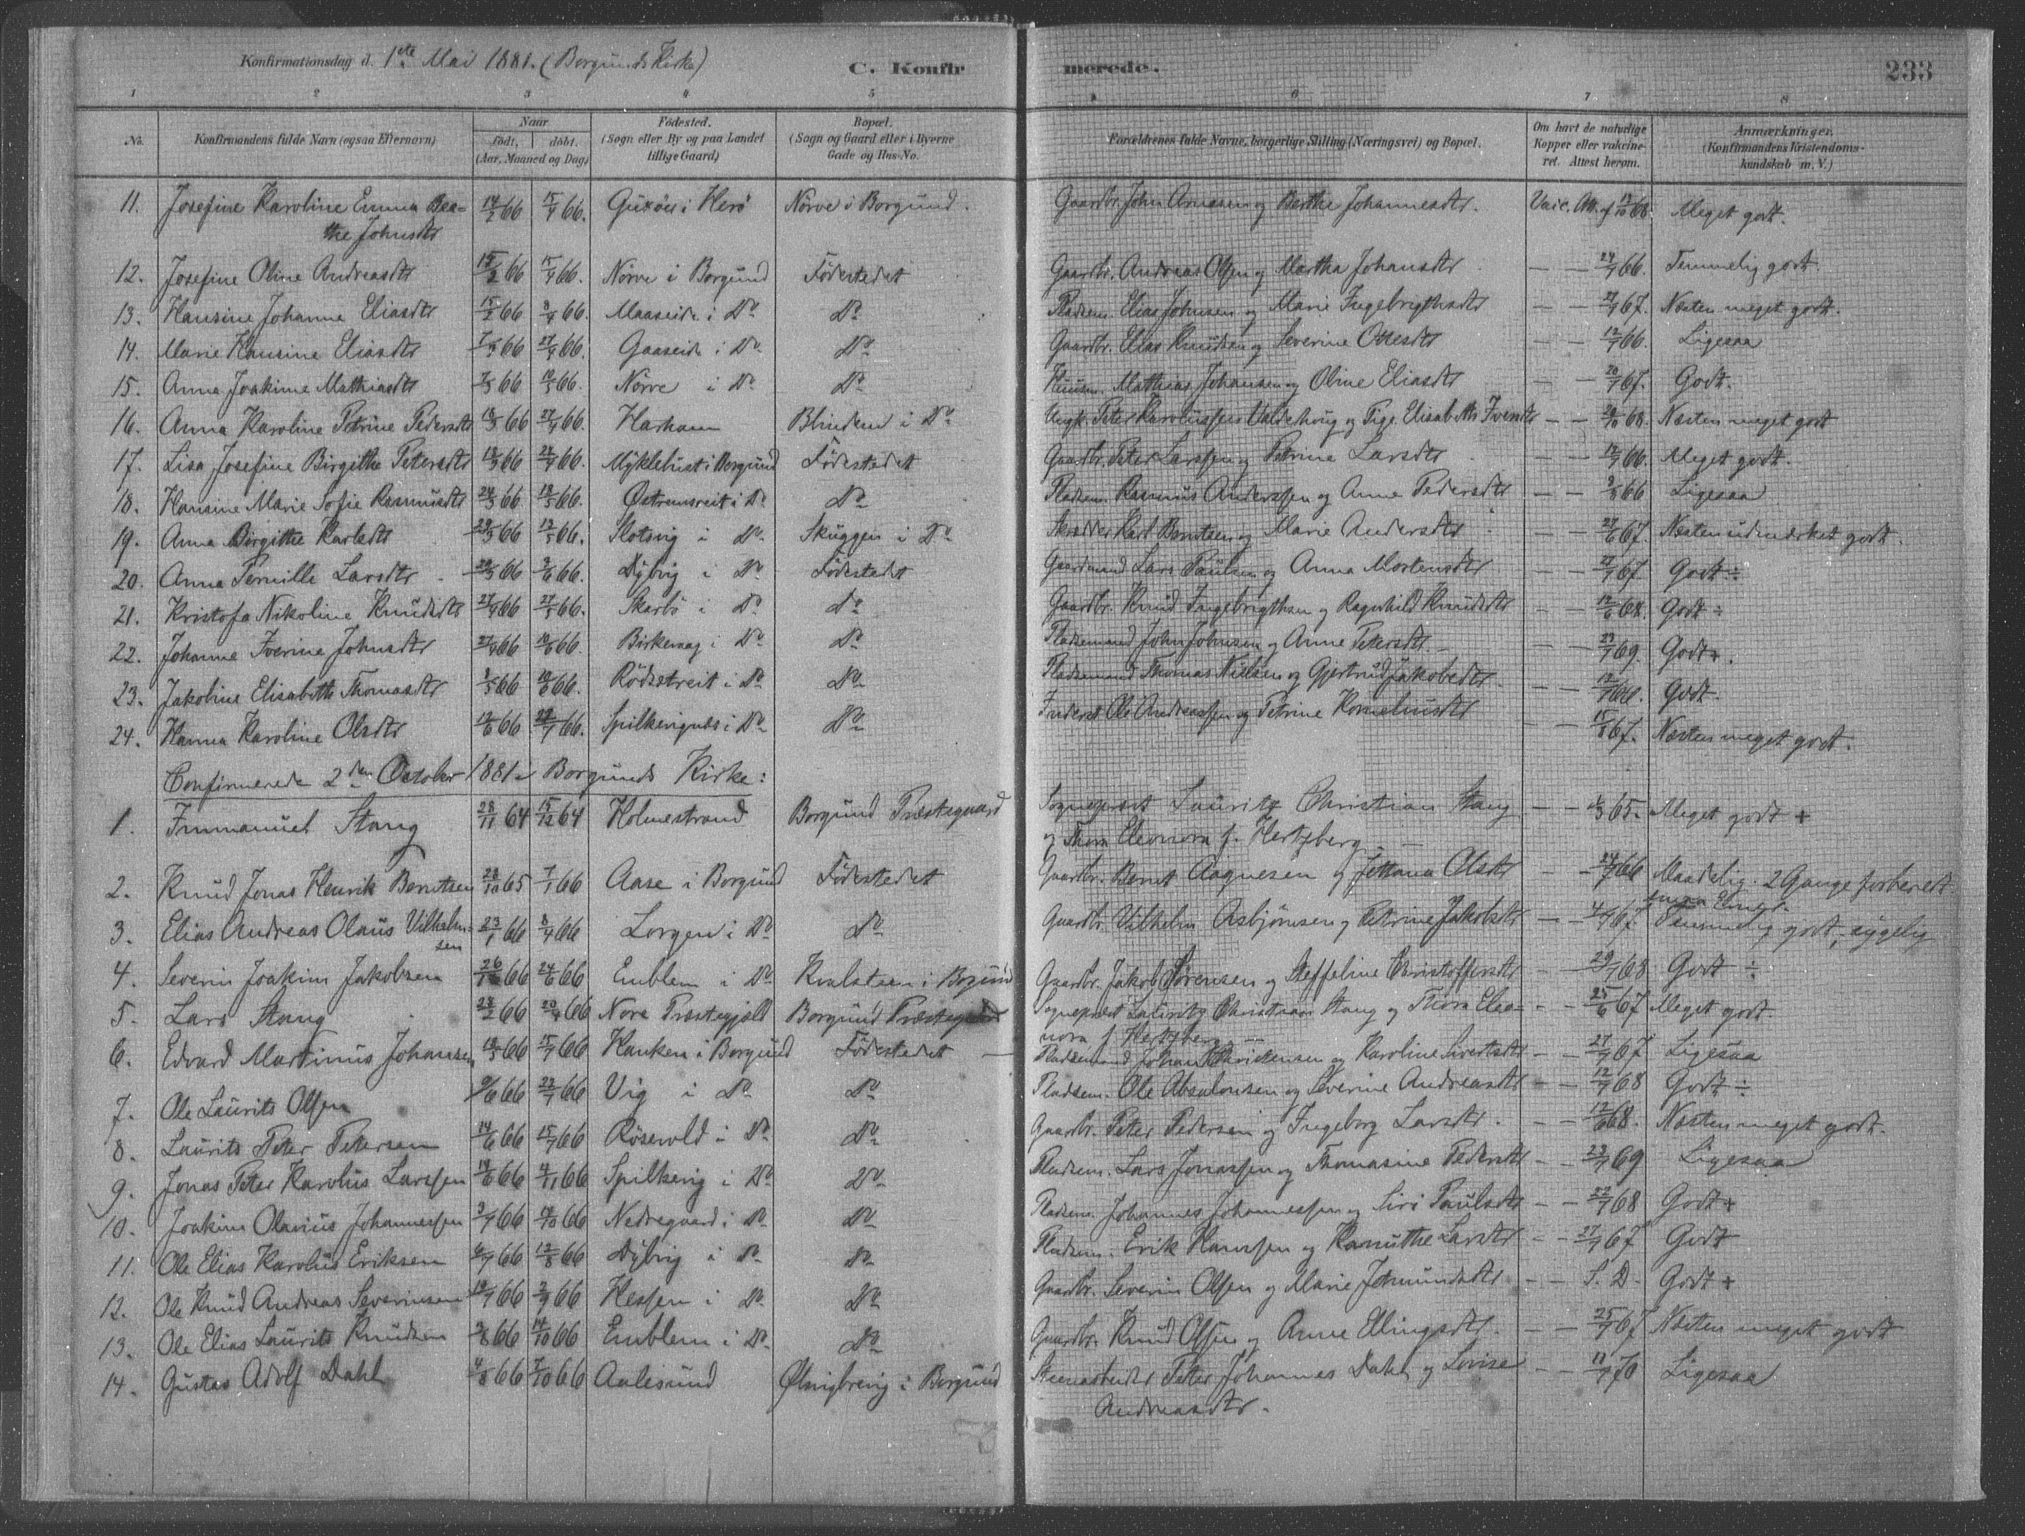 Konfirmationsdag d. 1ste Mai 1881. (Borgunds Kirke) C. Konfir merede. 233
1 2 3 4 5 6 7 8
No. Konfirmandens fulde Navn (ogsaa Efternavn) Naar født, døbt. (Aar, Maaned og Dag) Fødested. (Sogn eller By og paa Landet tillige Gaard) Bopæl. (Sogn og Gaard eller i Byerne Gade og Hus-No. Forældrenes fulde Navne, borgerlige Stilling (Næringsvei) og Bopæl. Om havt de naturlige Kopper eller vakcineret. Attest herom. Anmærkninger. (Konfirmandens Kristendomskundskab m. V.)
11. Josefine Karoline Emma Bea- 14/2 66 15/4 66. i Herø Nørve i Borgund. Gaardbr. John Arnesen og Berthe Johannesdtr. Vacc. Att. af 13/10 68. Meget godt.
the Johnsdtr
12. Josefine Oline Andreasdtr 15/2 66 15/4 66. Nørve i Borgund Fødestedet Gaardbr. Andreas Olsen og Martha Johansdtr — — 24/7 66. Temmelig godt.
13. Hansine Johanne Eliasdtr 15/2 66 8/4 66. Maaseide i Do Do Pladsem. Elias Johnsen og Marie Ingebrigthsdtr — — 27/7 67. Næsten meget godt.
14. Marie Hansine Eliasdtr 7/3 66 27/4 66. Gaaseide i Do Do Gaardbr. Elias Knudsen og Severine Olsdtr — — 12/7 66. Ligesaa
15. Anna Joakime Mathiasdtr 7/3 66 10/5 66. Nørve i Do Do Huusm. Mathias Johansen og Oline Eliasdtr — — 20/7 67. Godt.
16. Anna Karoline Petrine Pedersdtr 18/3 66 27/4 66. Harham Blindem i Do Ungk. Peter Karolussen Valdehoug og Pige Elisabeth Iversdtr — — 29/10 68. Næsten meget godt
17. Lisa Josefine Birgithe Petersdtr 18/3 66 22/4 66. Myklebust i Borgund Fødestedet Gaardbr. Peter Larssen og Petrine Larsdtr — — 12/7 66. Meget godt.
18. Hansine Marie Sofie Rasmusdtr 24/3 66 18/5 66. Østremsreit i Do Do Pladsem. Rasmus Anderssen og Anne Pedersdtr — — 9/8 66 Ligesaa
19. Anna Birgithe Karlsdtr 29/3 66 13/5 66. Slotsvig i Do Skuggen i Do Skrædder Karl Berntsen og Marie Andersdtr — — 27/6 67. Næsten udmærket godt.
20. Anna Pernille Larsdtr 29/3 66 3/6 66. Dybvig i Do Fødestedet Gaardmand Lars Paulsen og Anna Mortensdtr — — 27/7 67. Godt ÷
21. Kristofa Nikoline Knudsdtr 27/4 66 27/5 66. Skarbø i Do Do Gaardbr. Knud Ingebrigthsen og Ragnhild Knudsdtr — — 12/6 68. Godt ÷
22. Johanne Iverine Johnsdtr 27/4 66 10/6 66. Birkevaag i Do Do Pladsemand John Johnsen og Anne Petersdtr. — — 23/7 69. Godt +.
23. Jakobine Elisabethe Thomasdtr 2/5 66 10/6 66. Rødsetreit i Do Do Pladsemand Thomas Nielsen og Gjertrud Jakobsdtr. — — 12/7 66. Godt.
24. Hanna Karoline Olsdtr 12/6 66 22/7 66. Spilkevignæs i Do Do Inderst Ole Andreassen og Petrine Korneliusdtr — — 15/8 67. Næsten meget godt.
Confirmerede 2den October 1881 Borgunds Kirke:
1. Immanuel Stang 28/11 64 15/12 64 Holmestrand Borgund Præstegaard Sognepræst Lauritz Christian Stang — — 1/3 65. Meget godt +
og Thora Eleonora f. Hertzberg.
2. Knud Jonas Henrik Berntsen 28/10 65 7/1 66 Aase i Borgund Fødestedet Gaardbr. Bernt Aagnesen og Jettana Olsdtr — — 24/7 66 Maadelig. 2 Gange forberedt
3. Elias Andreas Olaus Vilhelm- 23/1 66 8/4 66 Lorgen i Do Do Gaardbr. Vilhelm Asbjørnsen og Petrine Jakobsdtr — — 4/7 67 Temmelig godt, sygelig
sen
4. Severin Joakim Jakobsen 26/1 66 24/6 66 Emblem i Do Kvalsteen i Borgund Gaardbr. Jakob Sørensen og Steffeline Christoffersdtr — — 29/7 68 Godt ÷
5. Lars Stang 28/2 66 20/4 66 Nore Præstegjeld Borgund Præstegaard Sognepræst Lauritz Christian Stang og Thora Eleo- — — 25/6 67 Meget godt.
nora f. Hertzberg —
6. Edvard Martinus Johansen 18/5 66 15/7 66 Hanken i Borgund Fødestedet — Pladsemand Johan Christensen og Karoline Sivertsdtr — — 27/7 67 Ligesaa
7. Ole Laurits Olsen 9/6 66 22/7 66 Vig i Do Do Pladsem. Ole Absalonsen og Severine Andreasdtr — — 12/7 68 Godt ÷
8. Laurits Peter Petersen 14/6 66 15/7 66 Røsevold i Do Do Gaardbr. Peter Pedersen og Ingeborg Larsdtr. — — 12/6 68. Næsten meget godt.
9. Jonas Peter Karolus Larssen 19/6 66 4/11 66 Spilkevig i Do Do Pladsem. Lars Jonassen og Thomasine Pedersdtr — — 23/7 69 Ligesaa
10. Joakim Olavius Johannessen 3/7 66 18/10 66 Nedregaard i Do Do Pladsem. Johannes Johannessen og Siri Paulsdtr — — 22/7 68 Godt +
11. Ole Elias Karolus Eriksen 6/7 66 12/8 66 Dybvig i Do Do Pladsem. Erik Hanssen og Kanuthe Larsdtr — — 27/7 67 Godt
12. Ole Knud Andreas Severinsen 19/7 66 2/9 66 Hessen i Do Do Gaardbr. Severin Olsen og Marie Johmundsdtr — — S. D. Godt +
13. Ole Elias Laurits Knudsen 2/8 66 14/10 66 Emblem i Do Do Gaardbr. Knud Olsen og Anne Ellingsdtr. — — 25/7 67 Næsten meget godt
14. Gustav Adolf Dahl 4/8 66 7/10 66 Aalesund i Borgund Steenarbeider Peter Johannes Dahl og Lovise — — 11/7 70 Ligesaa
Andreasdtr.